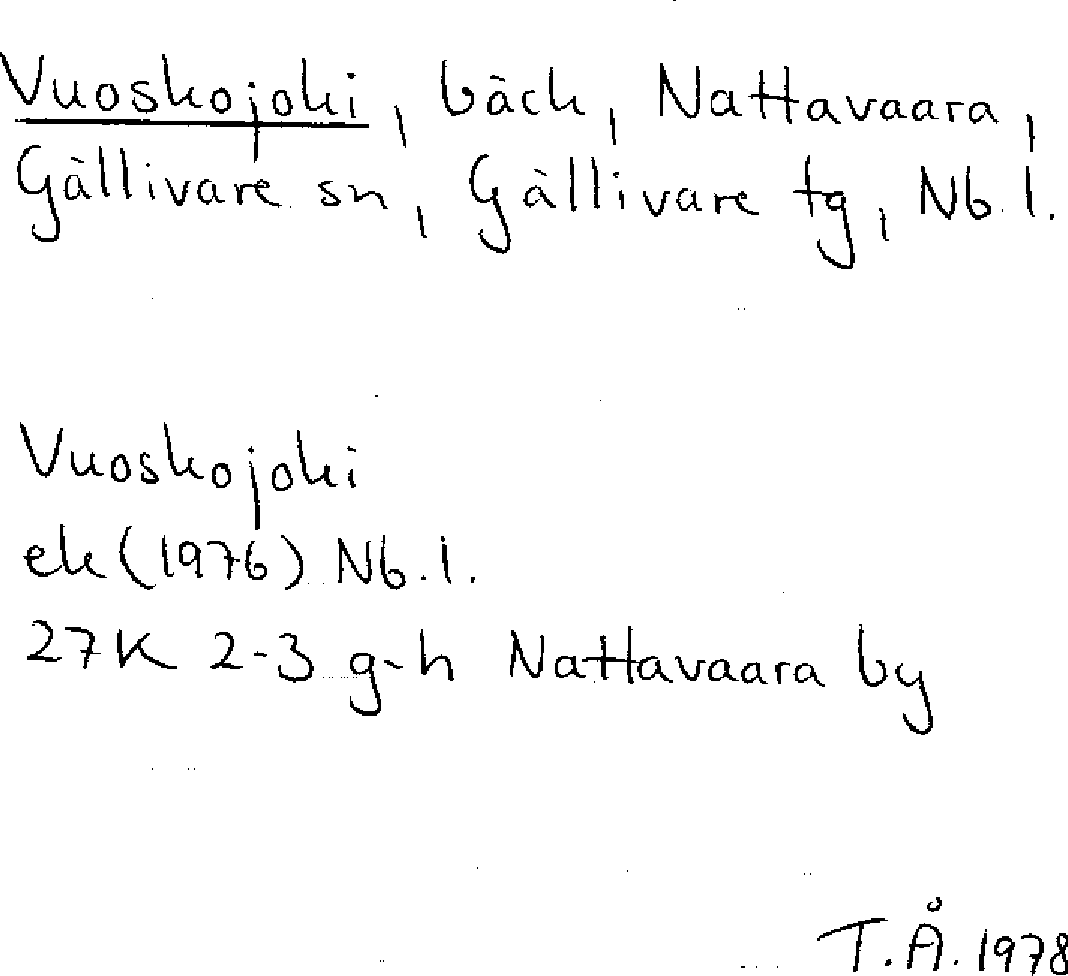 Vuoskojoki, bäck, Nattavaara,
Gällivare sn, Gällivare tg, Nb. l.
Vuoskojoki
ek (1976) Nb. l.
27K 2-3 g-h Nattavaara by
T.Å. 1978